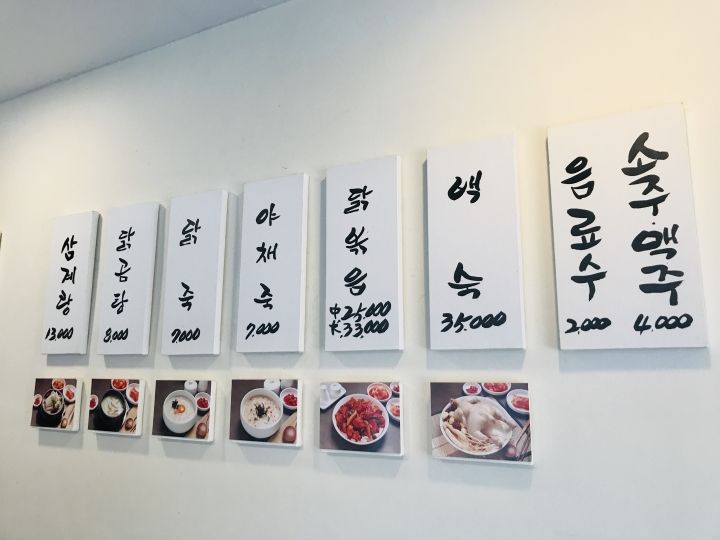 삼계탕
13,000
닭곰탕
8,000
닭죽
7,000
야채죽
7,000
닭볶음
中.25,000
大.33,000
백숙
35,000
음료수
2,000
소주맥주
4,000